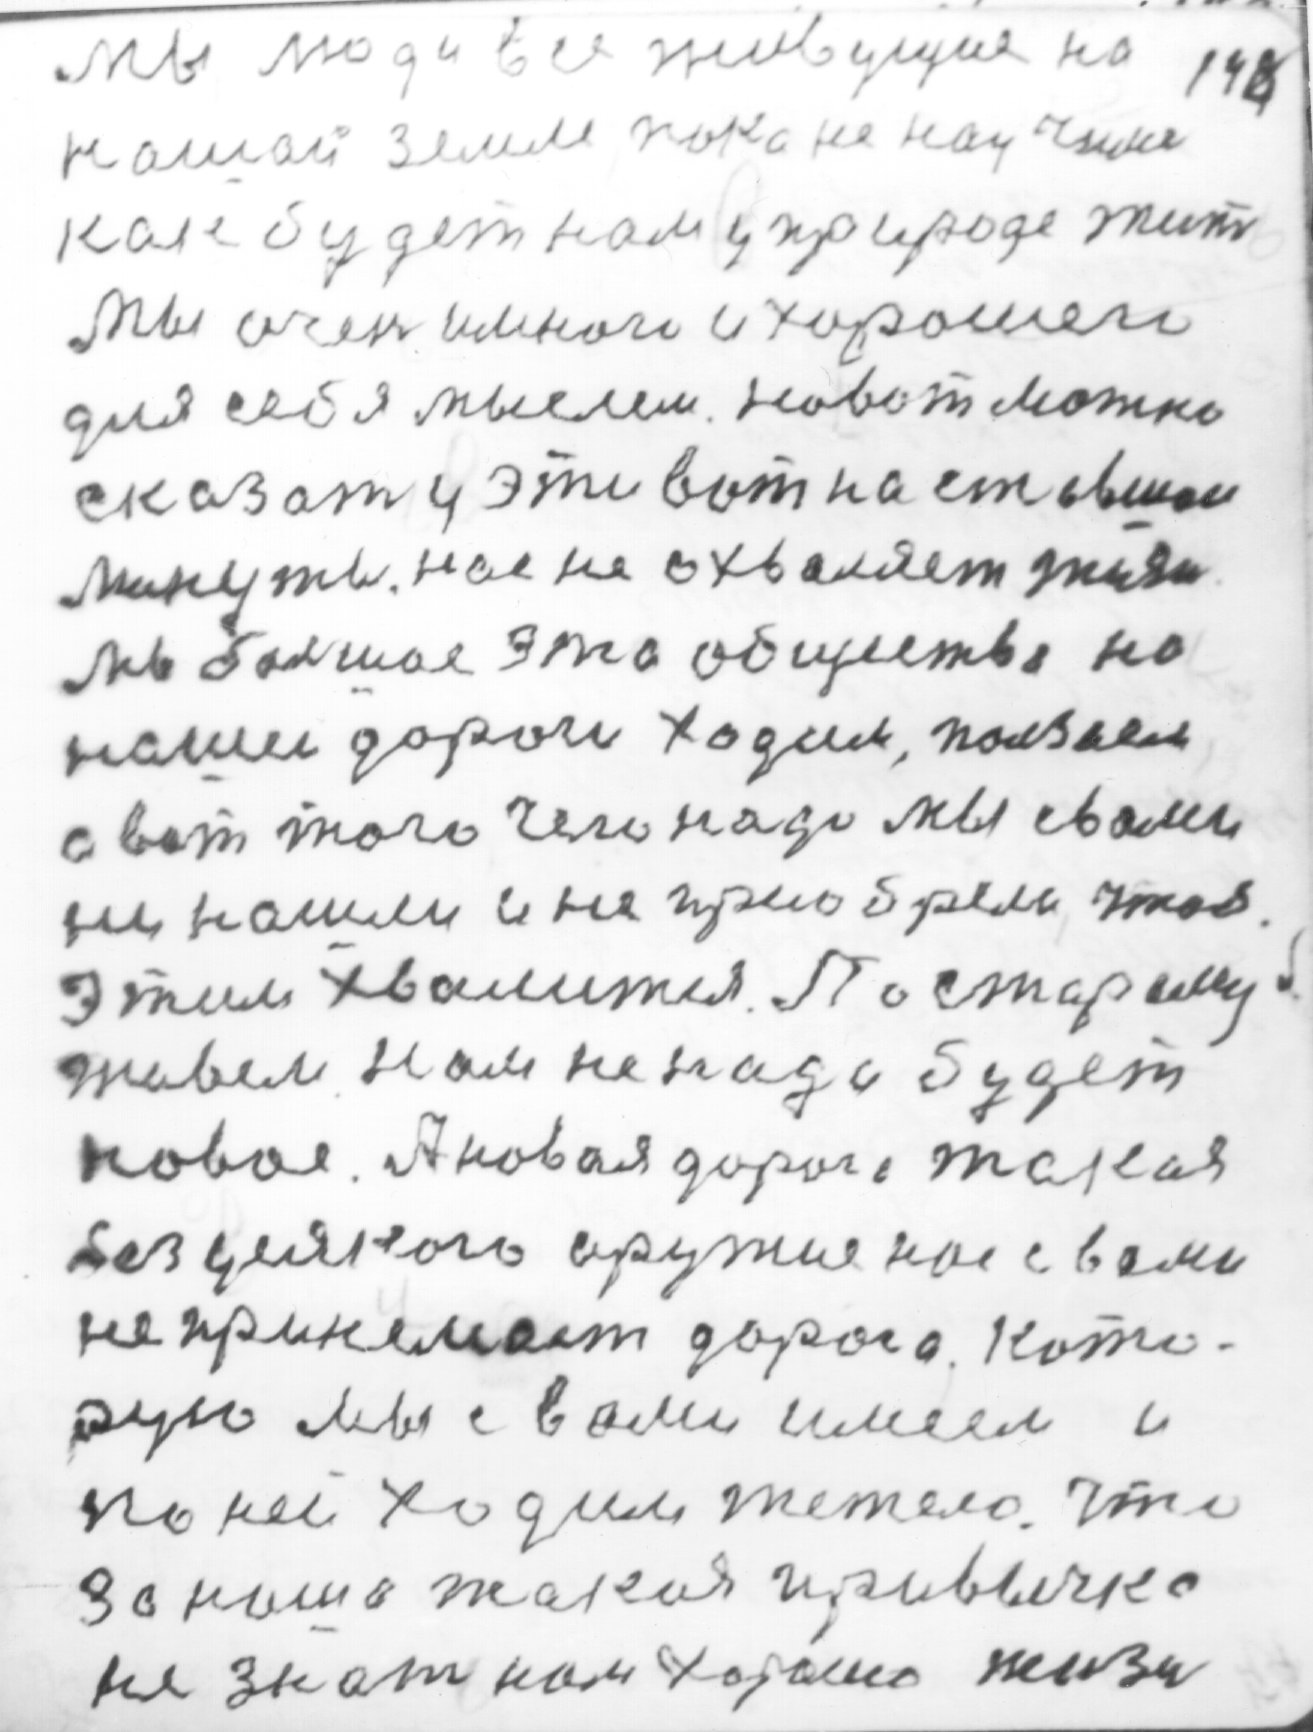 Мы люди все живущие на 148
нашай земле пока не научине
как будет нам у природе жить
Мы очен имного и хорошего
для себя мыслем. но вот можно
сказат у эти вот наставшаи
минуты. нас не охваляет жизн
мы большое эта общества на
нашеи дороги ходим, ползаем
а вот того чего надо мы свами
ни нашли и не приобрели, чтоб.
этим хвалится. По старому
живем нам не нада будет
новое. А новая дорога такая
без усякого оружие нас свами
не принемает дорога. Кото-
рую мы с вами имеем и
по ней ходим тежело. Что
за наша такая привычка
не знат нам хорошо жизн